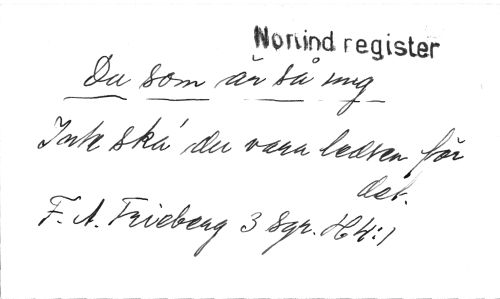 Norlind register
Du som är så ung
Inte ska' du vara ledsen för
det.
F. A. Frieberg 3 Sgr. H4:1